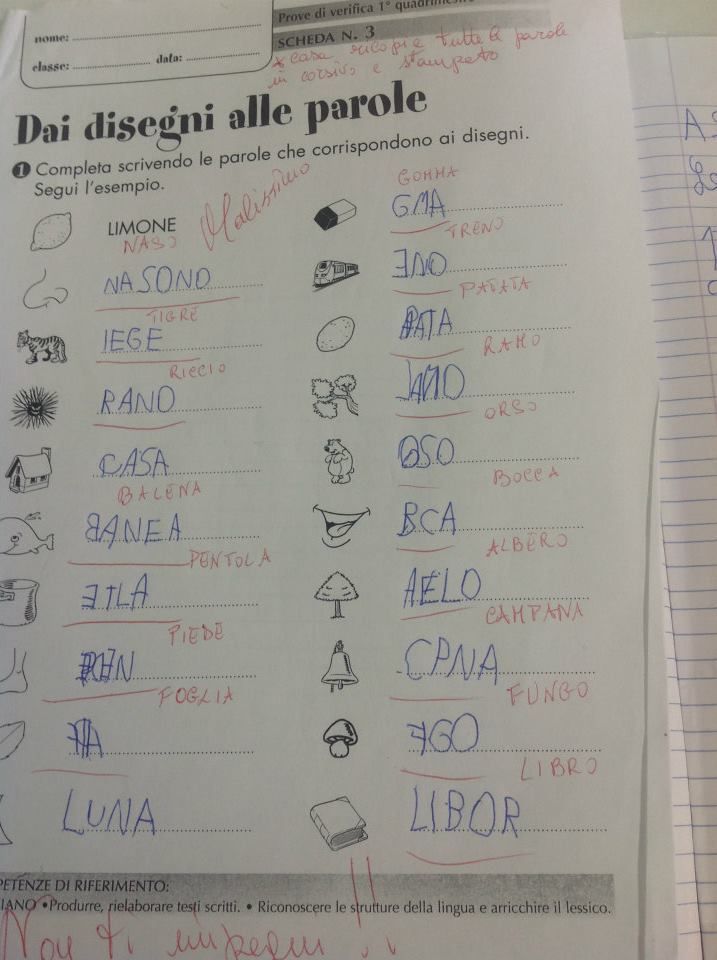 Prove di verifica 1° quadrimestre
nome:
SCHEDA N. 3
classe: data:
x casa ricopia tutte le parole
in corsivo e stampato
Dai disegni alle parole
1 Completa scrivendo le parole che corrispondono ai disegni.
Segui l'esempio.
LIMONE
Malissimo
NASO
NASONO
TIGRE
IEGE
RICCIO
RANO
CASA
BALENA
BANEA
PENTOLA
ETLA
PIEDE
FOGLIA
LUNA
GOMMA
GMA
TRENO
ENO
PATATA
PATA
RAMO
ORSO
OSO
BOCCA
BCA
ALBERO
AELO
CAMPANA
CPNA
FUNGO
FGO
LIBRO
LIBOR
PETENZE DI RIFERIMENTO:
IANO • Produrre, rielaborare testi scritti. • Riconoscere le strutture della lingua e arricchire il lessico.
Non ti impegni !!